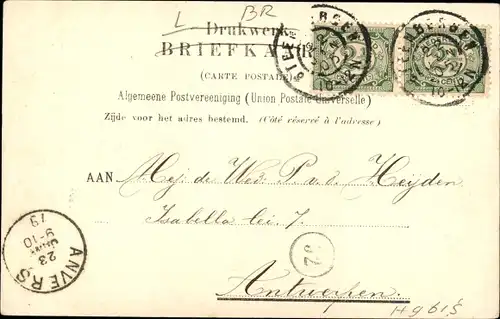 L BR
Drukwerk
BRIEFKAART
(CARTE POSTALE)
Algemeene Postvereeniging (Union Postale Universelle)
Zijde voor het adres bestemd. (Côté réservé à l'adresse)
AAN Mej. de Wed. P. v. d. Heyden
Isabella lei 7.
32
Antwerpen.
ANVERS
23
9-10
19
H9615